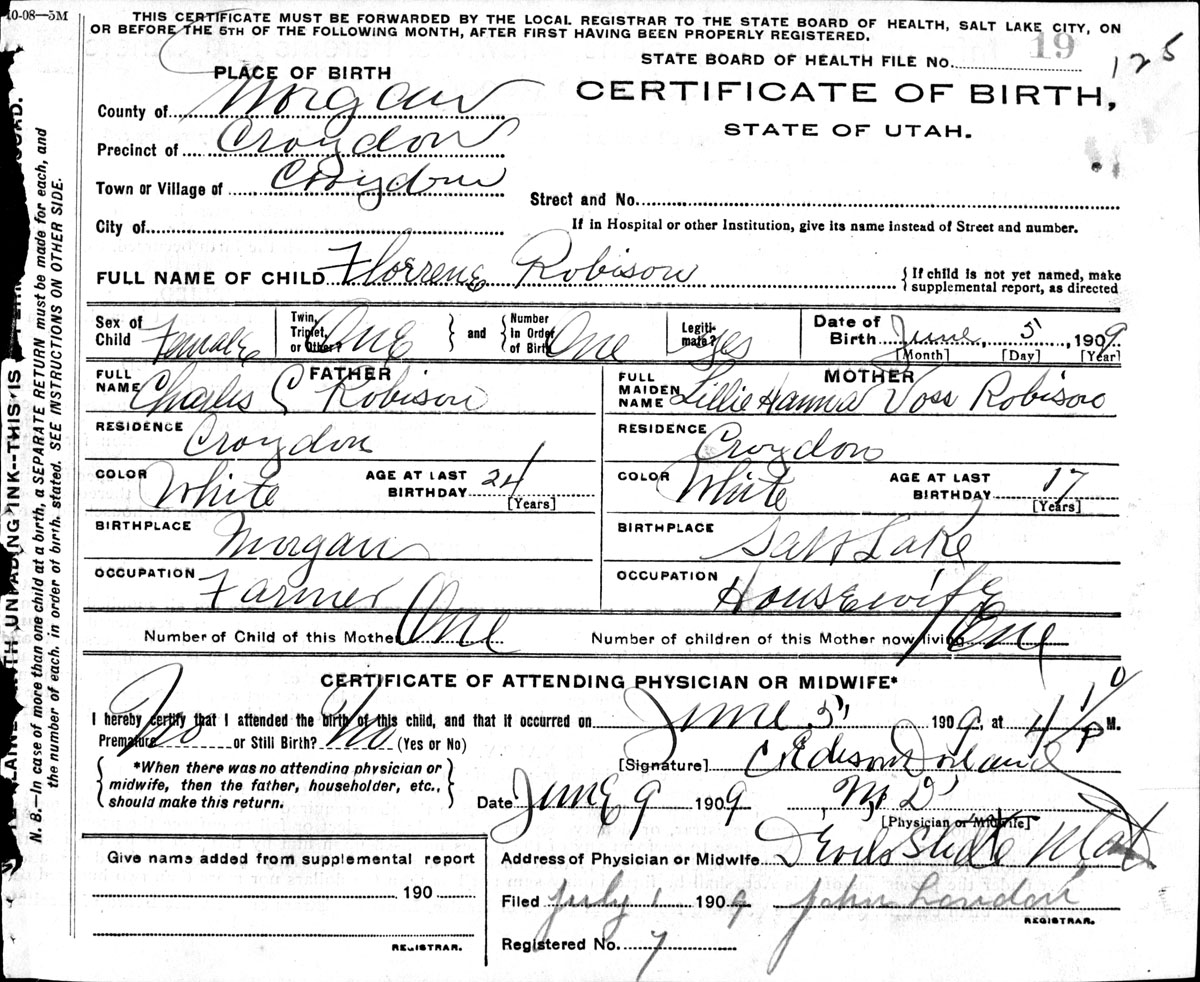 10-08—5M
THIS CERTIFICATE MUST BE FORWARDED BY THE LOCAL REGISTRAR TO THE STATE BOARD OF HEALTH, SALT LAKE CITY, ON
OR BEFORE THE 5TH OF THE FOLLOWING MONTH, AFTER FIRST HAVING BEEN PROPERLY REGISTERED.
STATE BOARD OF HEALTH FILE NO. 19 125
PLACE OF BIRTH
CERTIFICATE OF BIRTH,
STATE OF UTAH.
County of Morgan
Precinct of Croydon
Town or Village of Croydon
Street and No.
City of
If in Hospital or other Institution, give its name instead of Street and number.
FULL NAME OF CHILD Florrene Robison
{If child is not yet named, make
supplemental report, as directed
Sex of Child Female
Twin, Triplet, or Other? One
and
Number in Order of Birth One
Legitimate? Yes
Date of Birth June 5, 1909
[Month] [Day] [Year]
FATHER
FULL NAME Charles C Robison
RESIDENCE Croydon
COLOR White AGE AT LAST BIRTHDAY 24 [Years]
BIRTHPLACE Morgan
OCCUPATION Farmer
MOTHER
FULL MAIDEN NAME Lillie Hanna Voss Robison
RESIDENCE Croydon
COLOR White AGE AT LAST BIRTHDAY 17 [Years]
BIRTHPLACE Salt Lake
OCCUPATION Housewife
Number of Child of this Mother One Number of children of this Mother now living One
CERTIFICATE OF ATTENDING PHYSICIAN OR MIDWIFE*
I hereby certify that I attended the birth of this child, and that it occurred on June 5, 1909, at 4 10 P M.
Premature No or Still Birth? No (Yes or No)
*When there was no attending physician or
midwife, then the father, householder, etc.,
should make this return.
[Signature] Edison
Date June 9 1909 M. D.
[Physician or Midwife]
Address of Physician or Midwife Devils Slide Utah
Give name added from supplemental report
190
REGISTRAR.
Filed July 1 1909 John London
REGISTRAR.
Registered No. 7
UNFADING INK--THIS IS
N. B.—In case of more than one child at a birth, a SEPARATE RETURN must be made for each, and
the number of each, in order of birth, stated. SEE INSTRUCTIONS ON OTHER SIDE.